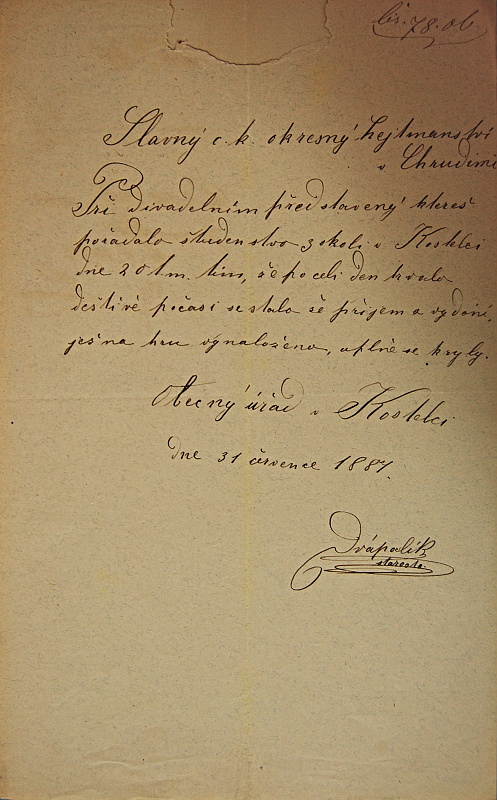 čís. 78. ob
Slavný c. k. okresný hejtmanství
v Chrudimi
Při divadelním představený ktereš
pořádalo študenstvo z okolí v Kostelci
dne 20 t.m. tím, že po celí den trvalo
deštivé počasí se stalo že příjem a vydání,
jež na hru vynaloženo, uplně se kryly.
Obecný úřad v Kostelci
dne 31 července 1887.
Drápalík
starosta